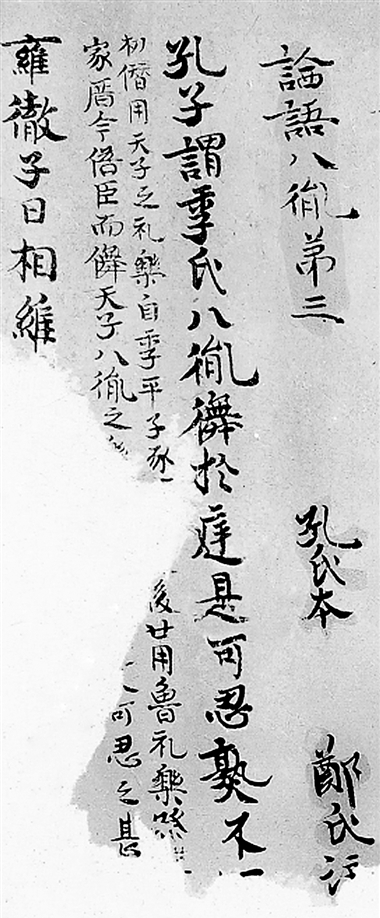 論語八佾第三 孔氏本 鄭氏注
孔子謂季氏八佾儛於庭是可忍熟不
初僭用天子之礼樂自季平子 後世用魯礼樂
家厝今倍臣而儛天子八佾之 可忍之甚
雍徹子曰相維